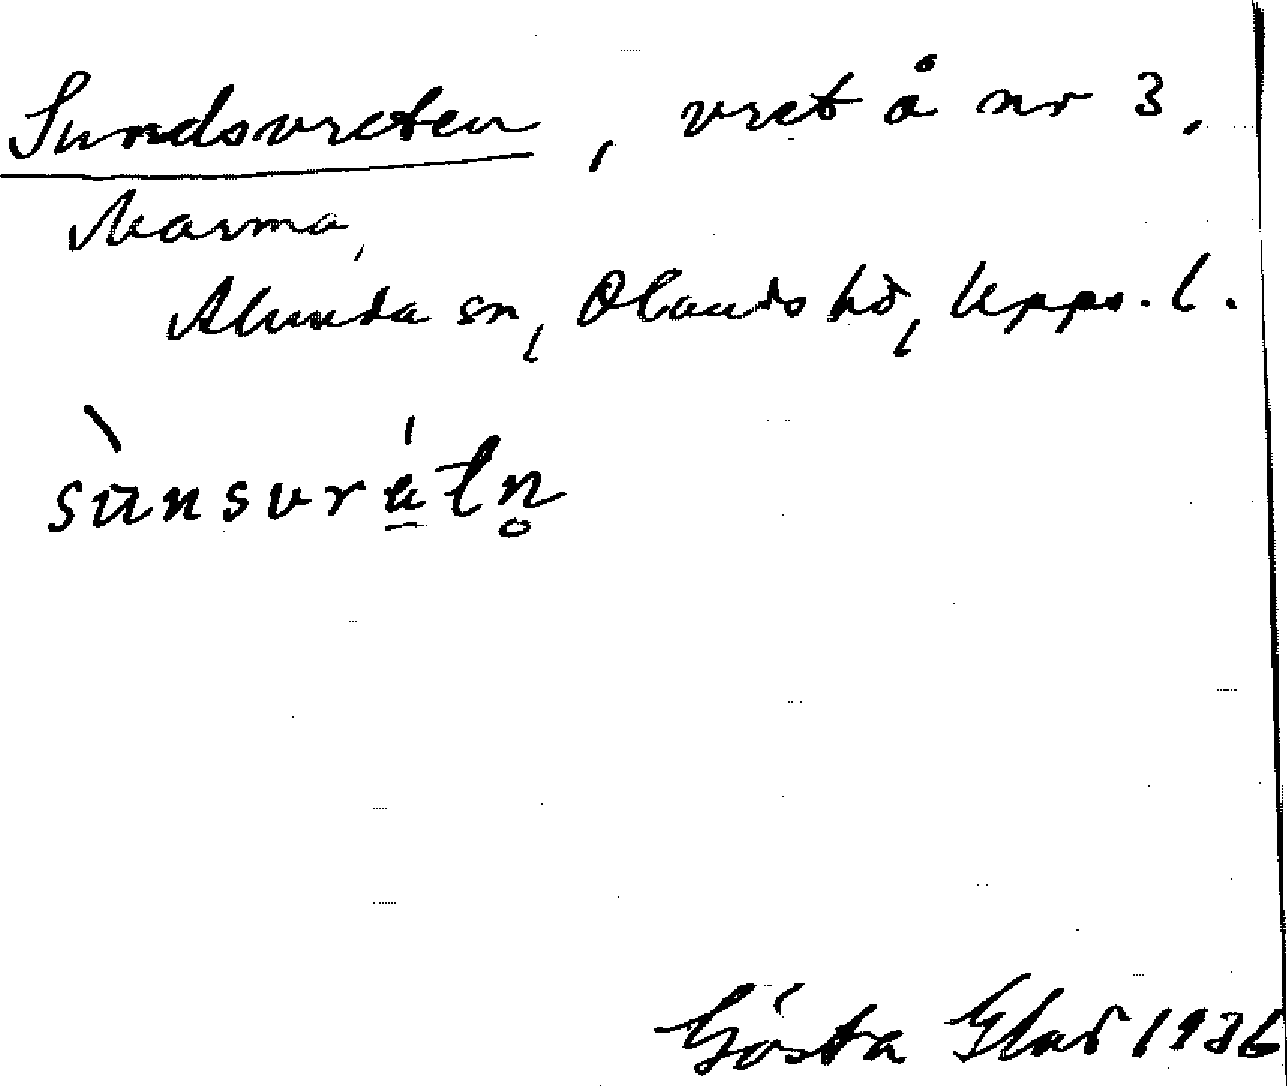 Sundsvreten, vret å nr 3,
Marma,
Alunda sn, Olands hd, Upps. l.
sùnsvrétn̥
Gösta Glad 1936